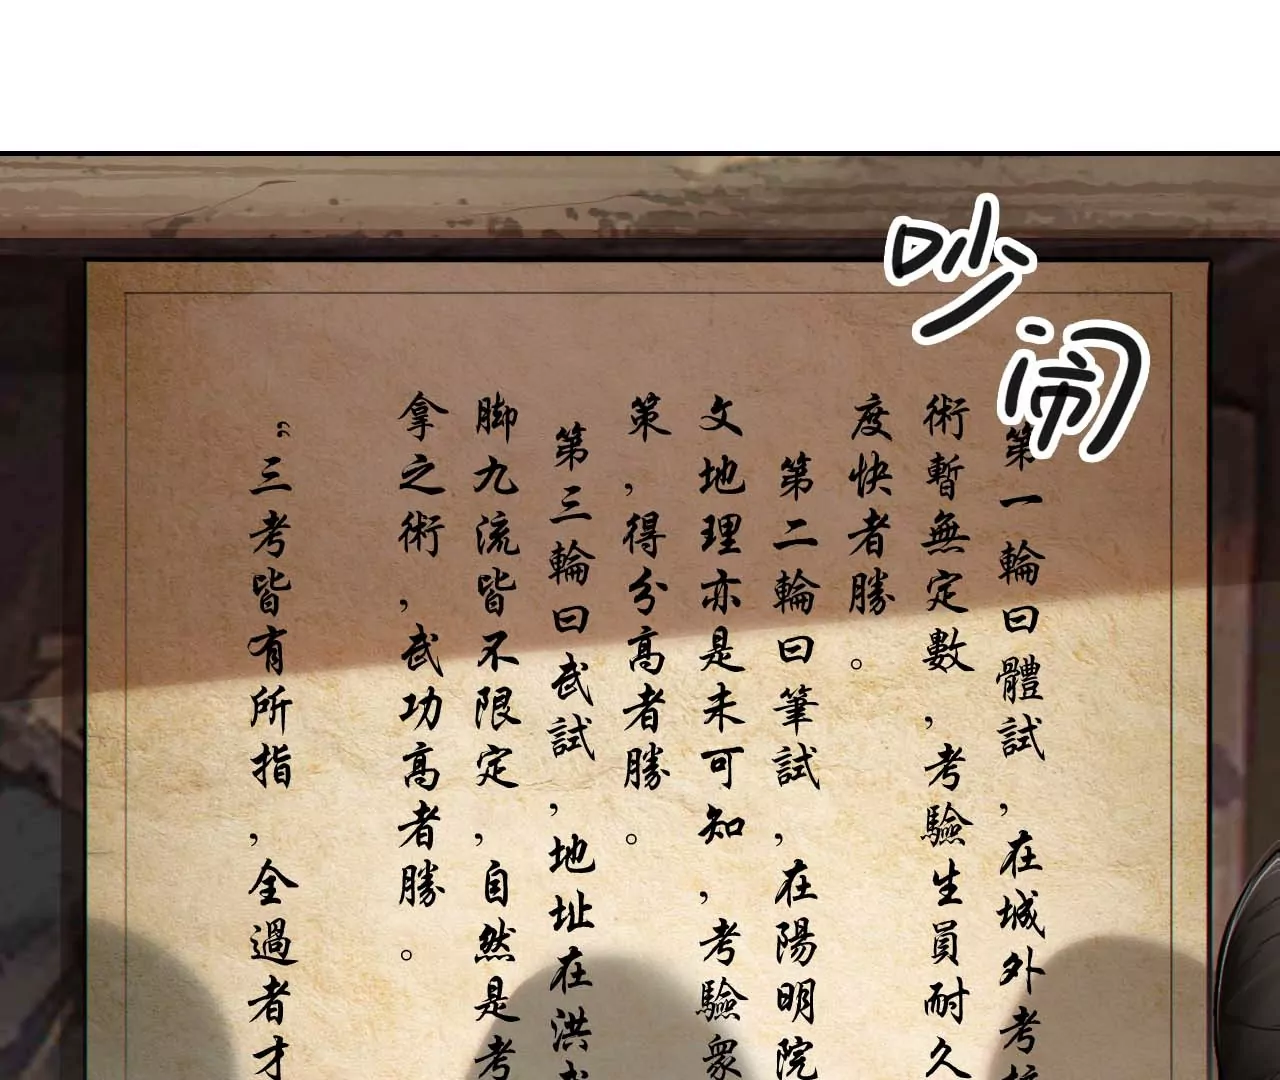 吵闹
第一輪曰體試,在城外考
術暫無定數,考驗生員耐久
度快者勝。
第二輪曰筆試,在陽明院
文地理亦是未可知,考驗眾
策,得分高者勝。
第三輪曰武試,地址在洪武
脚九流皆不限定,自然是考
拿之術,武功高者勝。
三考皆有所指,全過者才